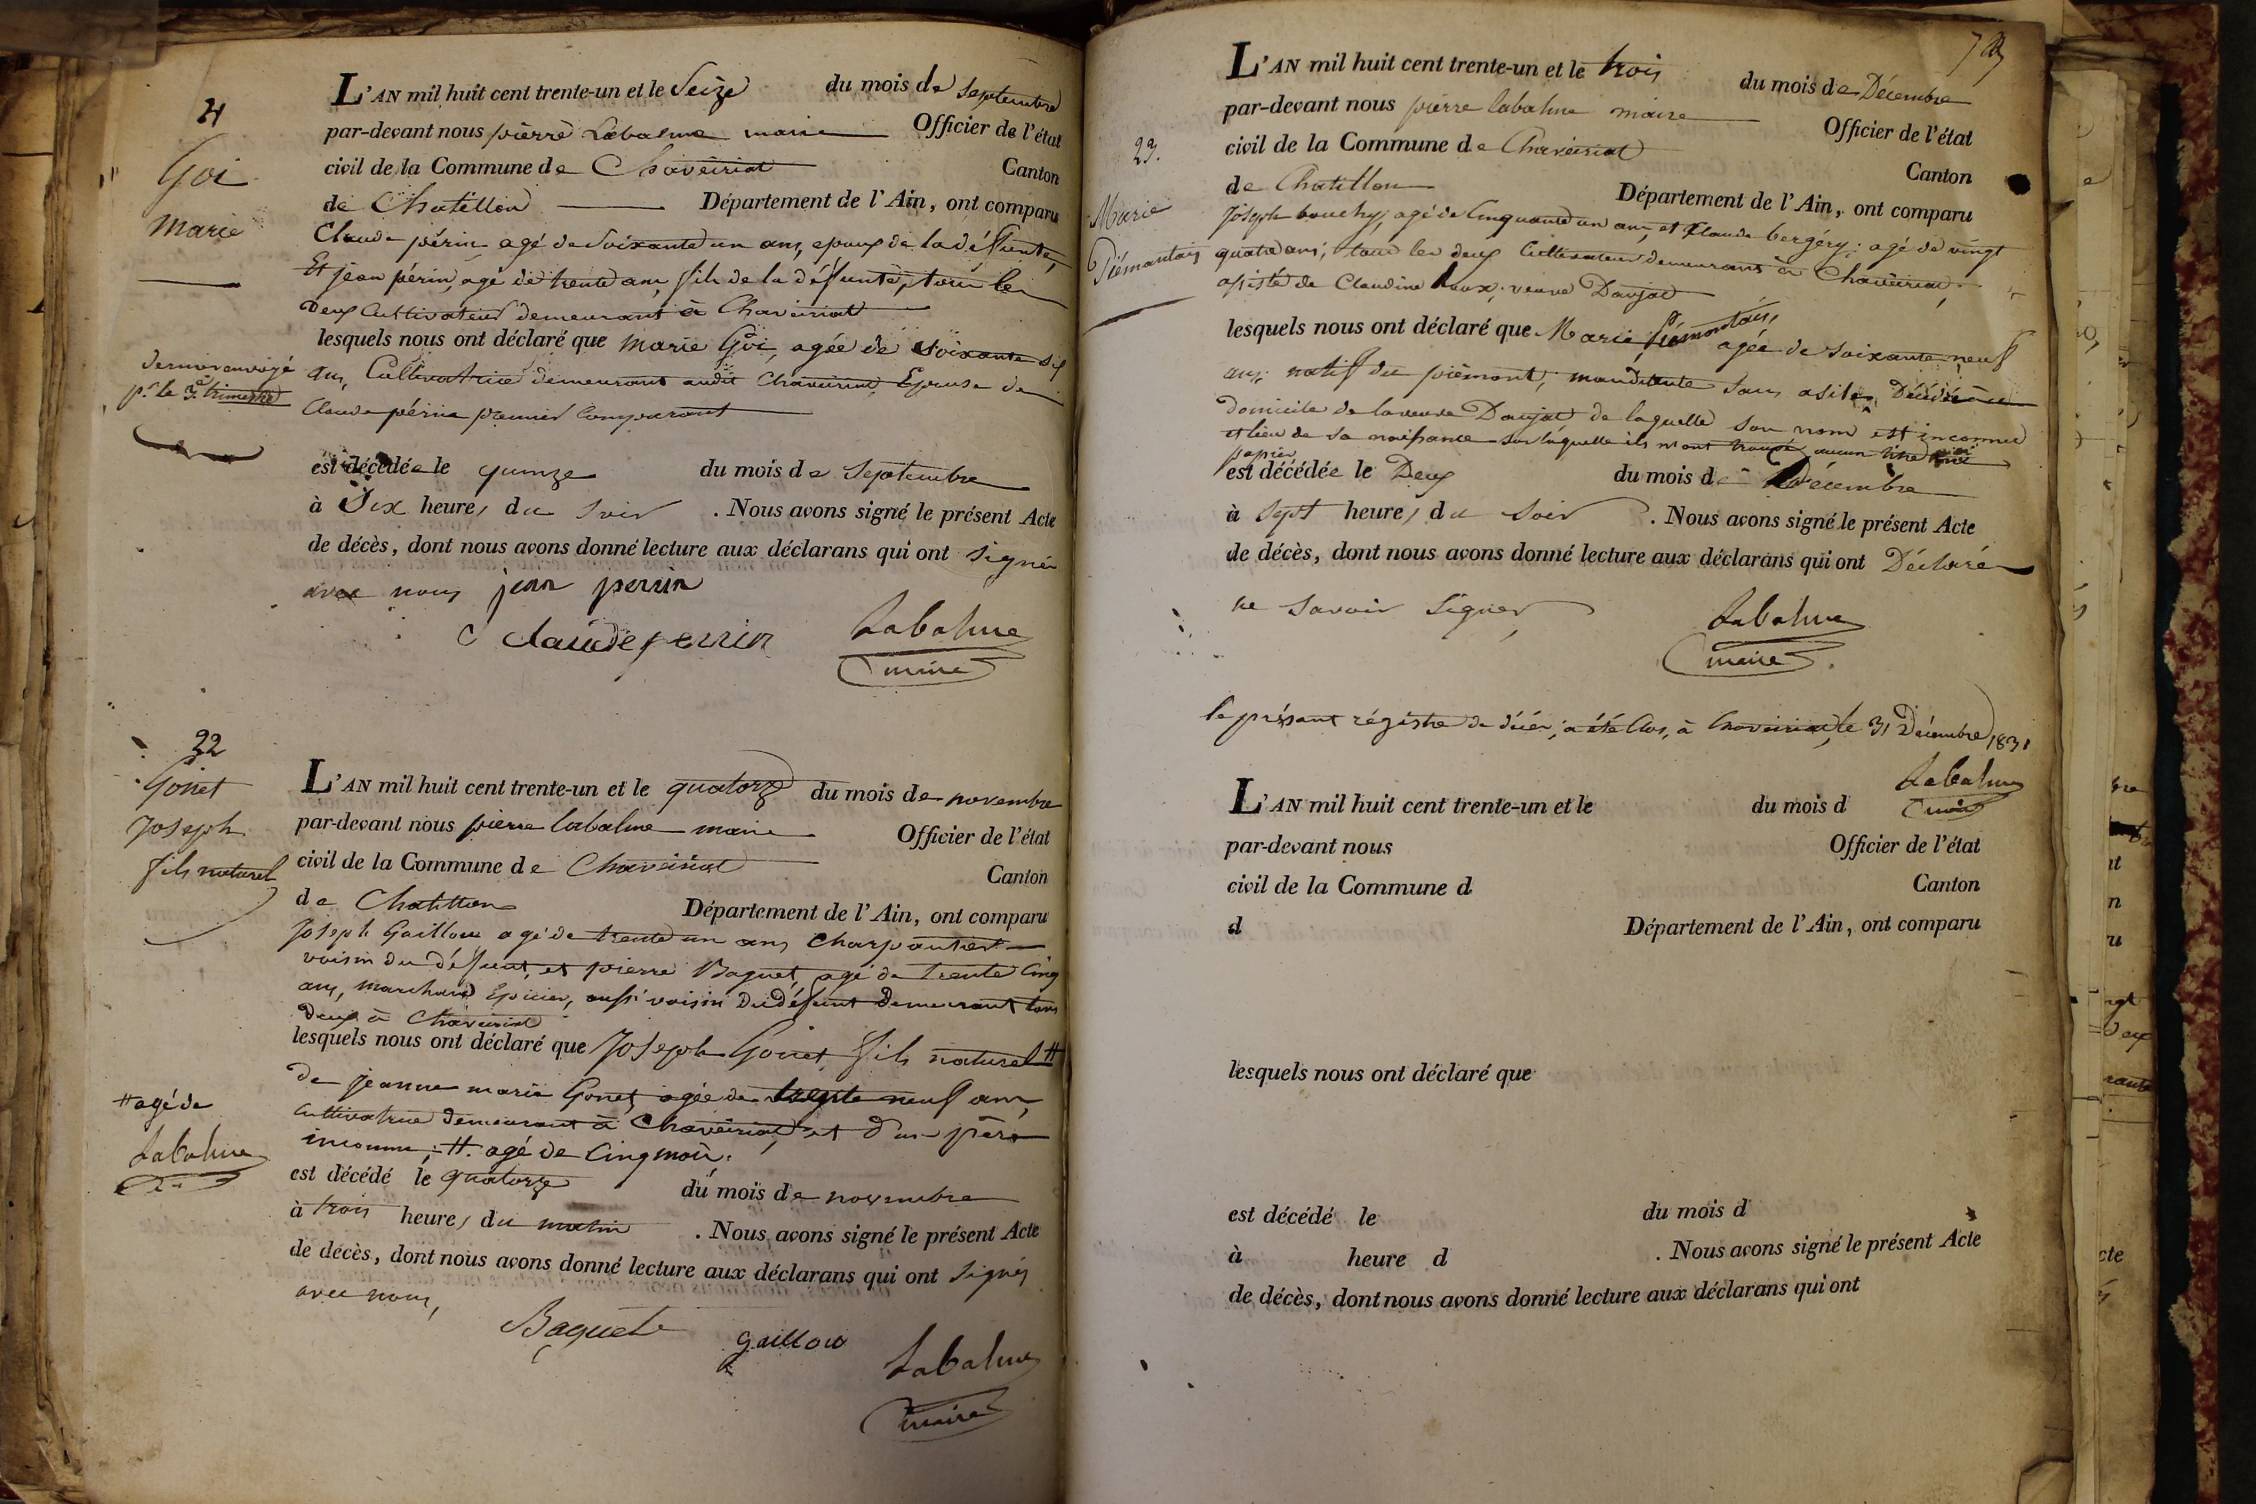 21
Goi
Marie
L'AN mil huit cent trente-un et le Seize du mois de Septembre
par-devant nous pierre Labalme maire Officier de l'état
civil de la Commune de Chaveiriat Canton
de Chatillon Département de l'Ain, ont comparu
Claude périn agé de Soixante un ans, epoux de la défunte,
Et jean périn, agé de trente ans, fils de la défunte, tous les
Deux Cultivateurs demeurant à Chaveiriat
lesquels nous ont déclaré que Marie Goi, agée de soixante six
ans, Cultivatrice demeurant audit Chaveiriat, Epouse de
Claude périn premier Comparant
dernier envoyé
pr. le 3e trimestre
est décédée le quinze du mois de Septembre
à Six heures du Soir . Nous avons signé le présent Acte
de décès, dont nous avons donné lecture aux déclarans qui ont signés
avec nous jean perrin
Claude perrin Labalme
maire
22
Gonet
Joseph
fils naturel
L'AN mil huit cent trente-un et le quatorze du mois de novembre
par-devant nous pierre labalme maire Officier de l'état
civil de la Commune de Chaveiriat Canton
de Chatillon Département de l'Ain, ont comparu
Joseph Gaillou agé de trente un ans Charpantier
voisin du défunt, et pierre Baguet, agé de trente Cinq
ans, marchand Epicier, aussi voisin du défunt demeurant tous
deux à Chaveiriat
lesquels nous ont déclaré que Joseph Gonet, fils naturel #
de jeanne marie Gonet, agée de trente neuf ans,
Cultivatrice demeurant à Chaveiriat, et d'un père
inconnu, #. agé de Cinq mois.
# agé de
Labalme
est décédé le quatorze du mois de novembre
à trois heures du matin . Nous avons signé le présent Acte
de décès, dont nous avons donné lecture aux déclarans qui ont signés
avec nous,
Baguet gaillou Labalme
maire
L'AN mil huit cent trente-un et le trois du mois de Décembre
par-devant nous pierre labalme maire Officier de l'état
civil de la Commune de Chaveiriat Canton
de Chatillon Département de l'Ain, ont comparu
23.
Marie
Piémontais
Joseph bouchy, agé de Cinquante un ans, et Claude bergéry, agé de vingt
quatre ans, tous les deux Cultivateurs demeurants à Chaveiriat,
asisté de Claudine veuve Daujat
lesquels nous ont déclaré que Marie Piémontais, agée de soixante neuf
ans, natif du piémont, mandiante sans asile, Décédée au
domicile de la veuve Daujat de laquelle son nom est inconnu
et lieu de sa naissance sur laquelle ils n'ont trouvé aucun titre ni
papier
est décédée le Deux du mois de Décembre
à Sept heures du Soir . Nous avons signé le présent Acte
de décès, dont nous avons donné lecture aux déclarans qui ont Déclarés
ne Savoir Signer, Labalme
maire
le présant régistre de décès, a été Clos, à Chaveiriat, le 31 Décembre 1831
Labalme
maire
L'AN mil huit cent trente-un et le du mois d
par-devant nous Officier de l'état
civil de la Commune d Canton
d Département de l'Ain, ont comparu
lesquels nous ont déclaré que
est décédé le du mois d
à heure d . Nous avons signé le présent Acte
de décès, dont nous avons donné lecture aux déclarans qui ont